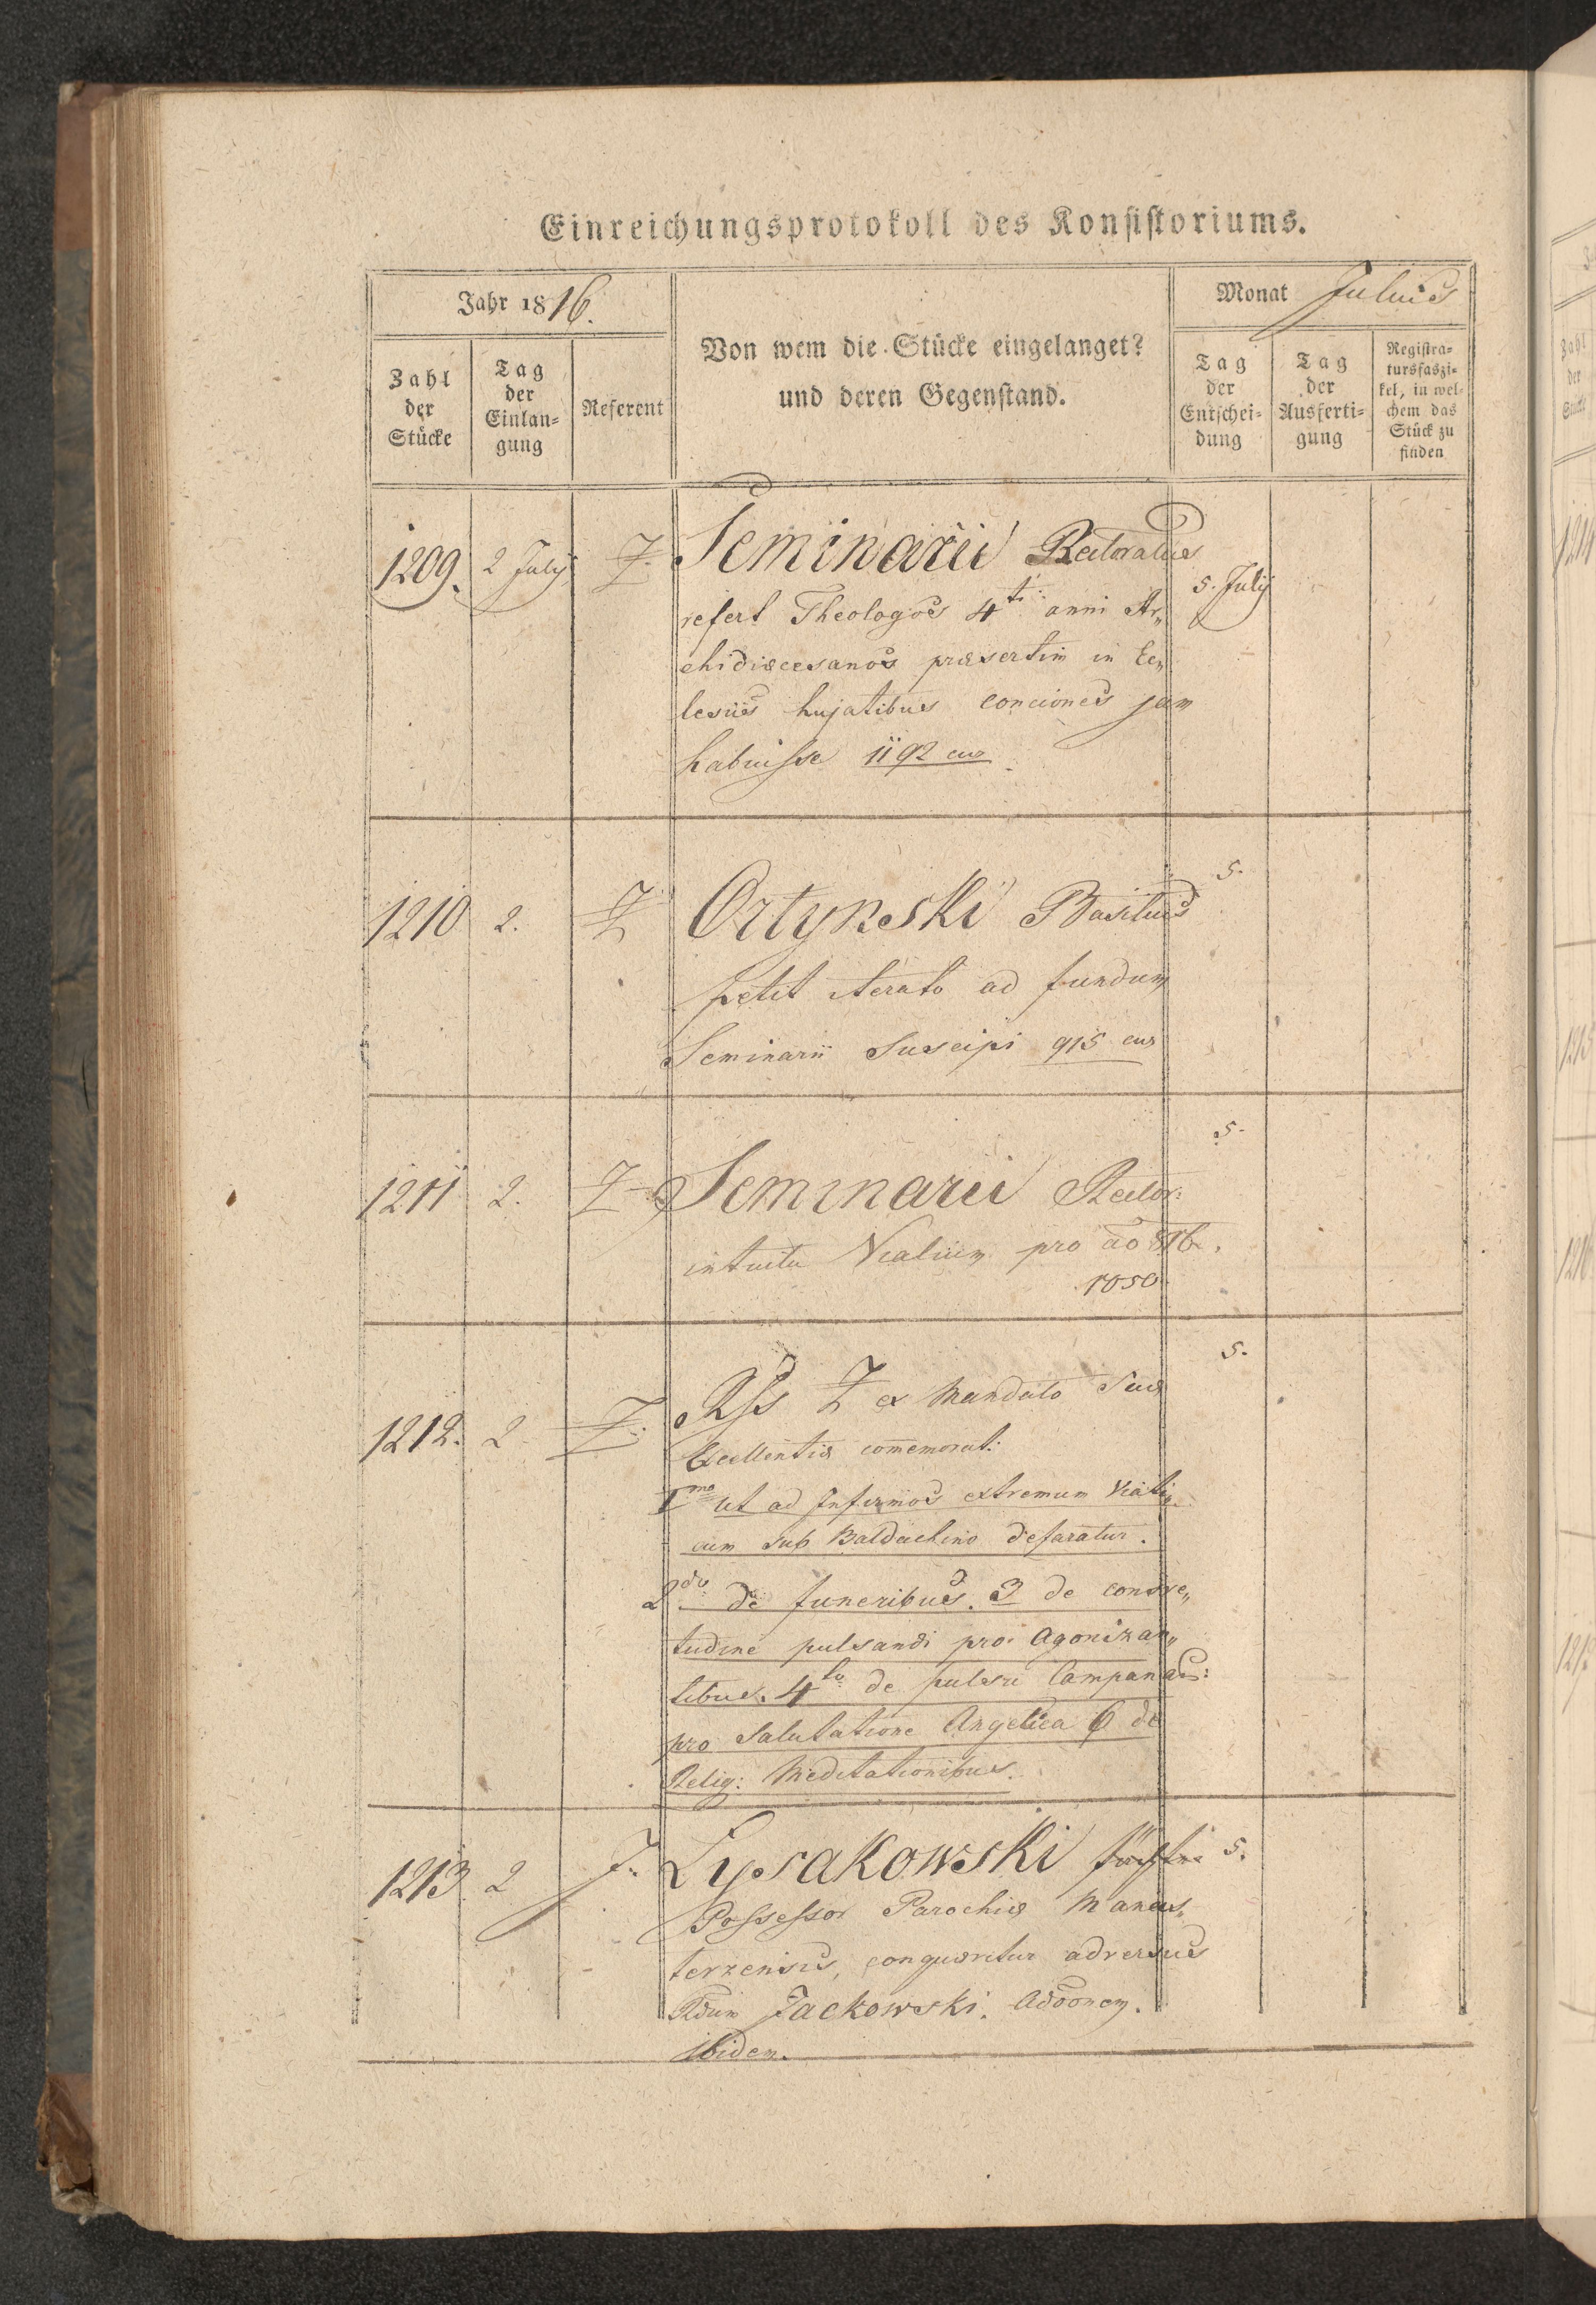 Einreichungsprotokoll des Konsistoriums.
Jahr 1816.
Monat Julius
Zahl der Stücke
Tag der Einlan=gung
Referent
Von wem die Stücke eingelanget?
und deren Gegenstand.
Tag der Entschei=dung
Tag der Ausferti=gung
Registra=tursfaszi=kel, in wel=chem das Stück zu finden
1209. 2 July Z. Seminarii Rectoratus
refert Theologos 4ti anni Ar„ 5. July
chidiæcesanos præsertim in Ec„
lesiis hujatibus conciones jam
habuisse 1192 cur
5.
1210 2. Z Ortynski Basilius
petit iterato ad fundum
Seminarii Suscipi 915 cur
5.
1211 2. Z Seminarii Rector:
intuitu Vcalium pro ao 816.
1050
5.
1212. 2 Z. Rss Z ex Mandato Suæ
Excellentiæ comemorat:
1mo ut ad Infirmos extremum Viati„
cum sub Baldachino defaratur.
2do de funeribus. 3 de consve„
tudine pulsandi pro Agonizan„
tibus. 4to de pulsu Campanæ:
pro Salutatione Angelica 6 de
Relig: Meditationibus.
1213 2 J. Lysakowski 5.
Possessor Parochiæ Manas„
terzensis, conquæritur adversus
Rdum Jackowski. Adöonem.
ibidem.